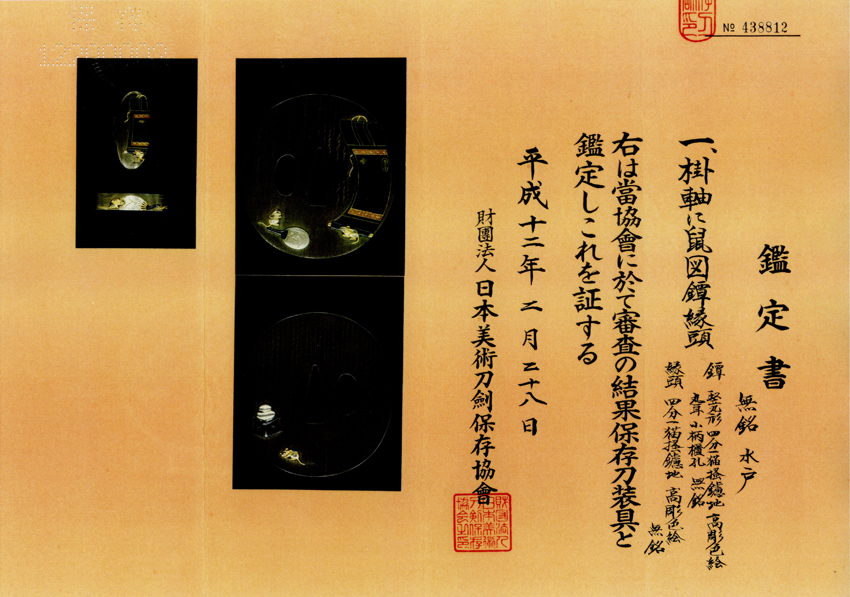 № 438812
鑑定書
無銘 水戸
一、掛軸に鼠図鐔縁頭
鐔 竪丸形 四分一猫掻鑢地 高彫色絵
丸耳 小柄櫃孔 無銘
縁頭 四分一猫掻鑢地 高彫色絵
無銘
右は當協會に於て審査の結果保存刀装具と
鑑定しこれを証する
平成十二年二月二十八日
財團法人 日本美術刀劍保存協會
財団法人
日本美術
刀剣保存
協会之印